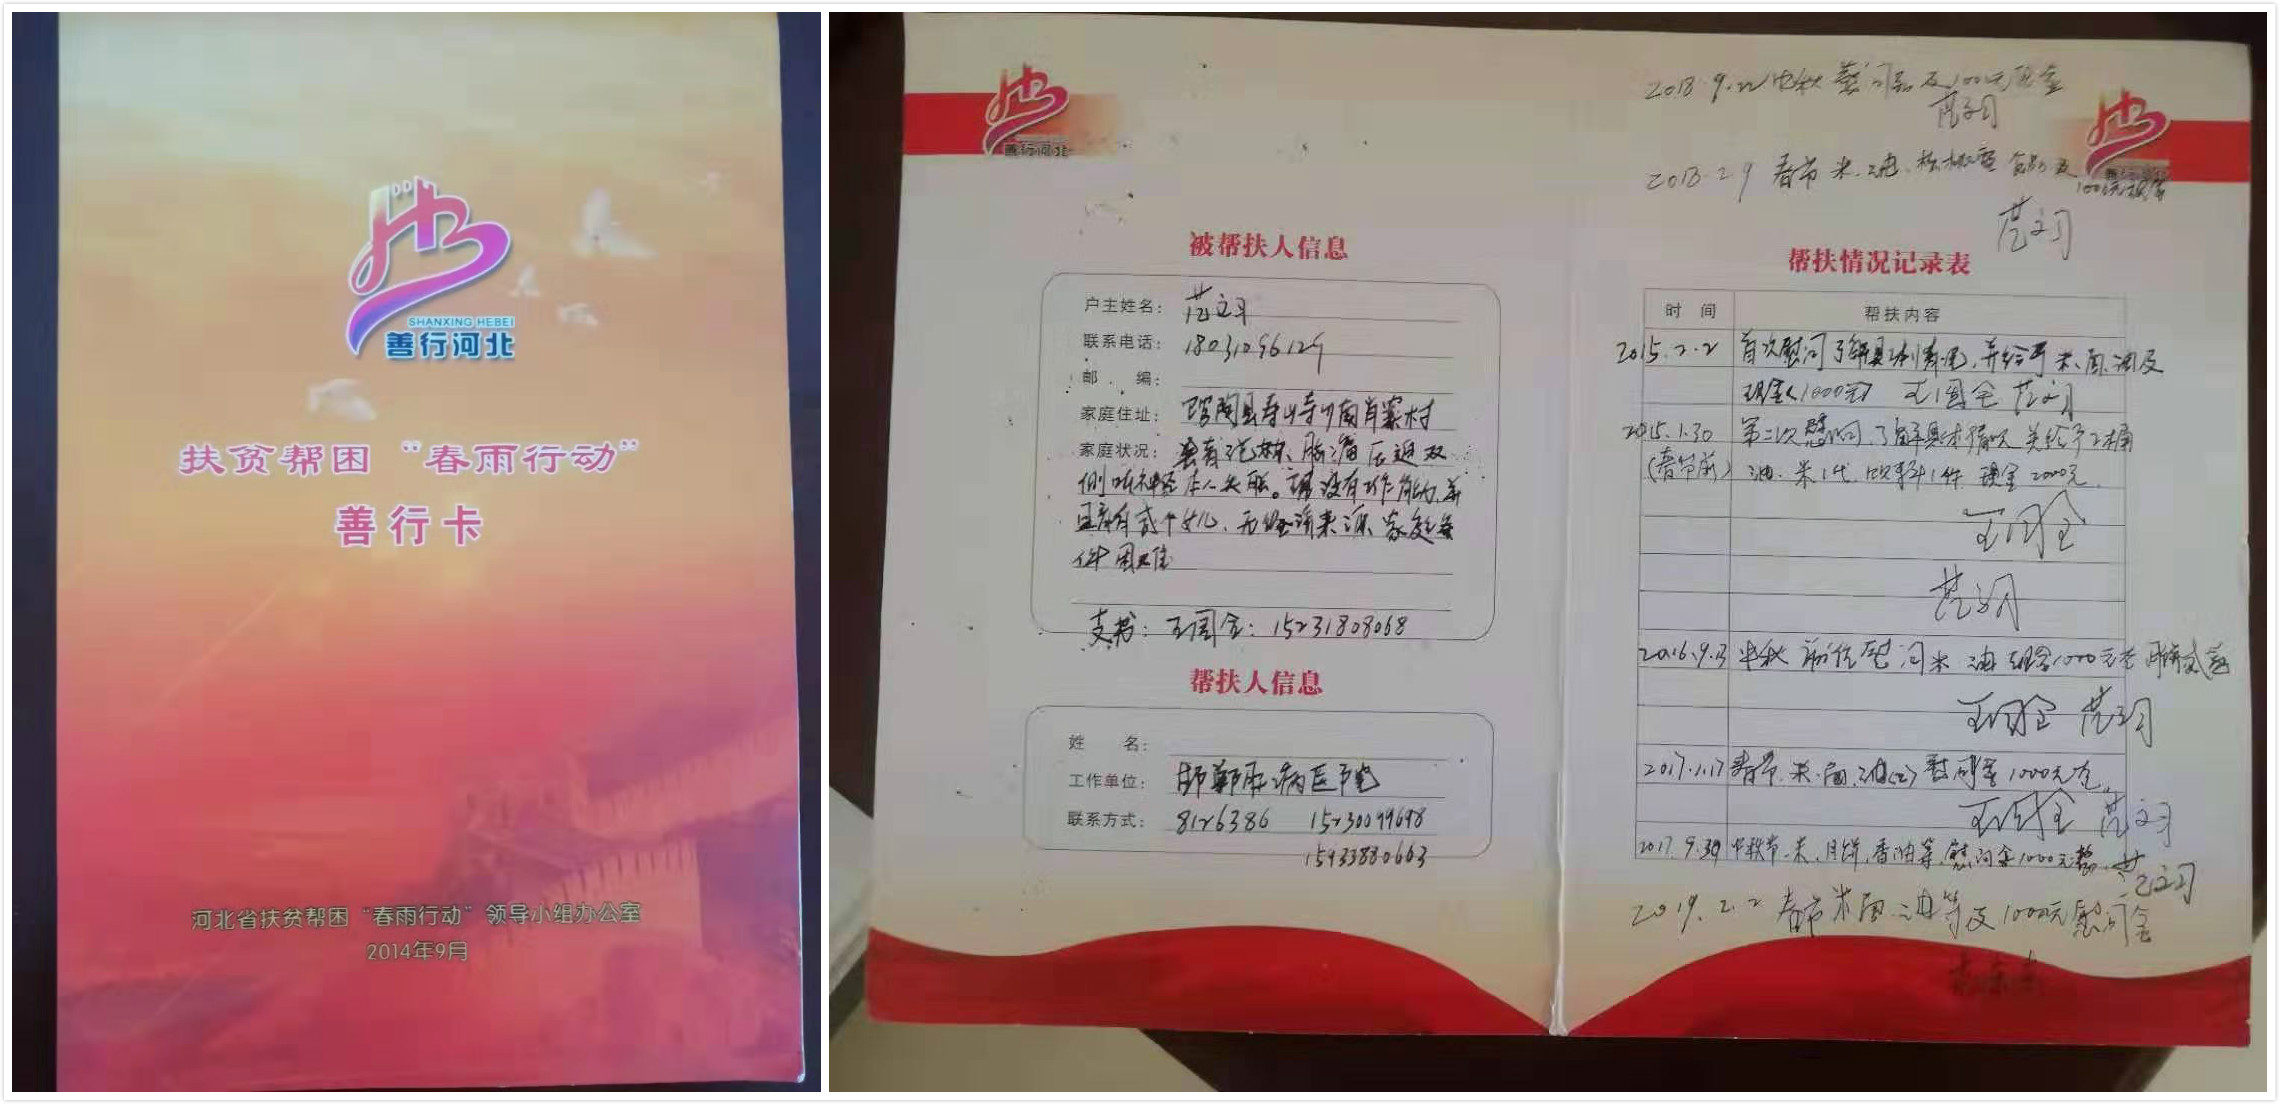 SHANXING HEBEI
善行河北
扶贫帮困“春雨行动”
善行卡
河北省扶贫帮困“春雨行动”领导小组办公室
2014年9月
善行河北
被帮扶人信息
户主姓名：范文习
联系电话：
邮 编：
家庭住址：馆陶县寿山寺乡南肖寨村
家庭状况：
没有工作能力
无经济来源 家庭条
件困难
支书：王国全：15231808068
帮扶人信息
姓 名：
工作单位：邯郸 病医院
联系方式：8126386
15933880663
2018.9.22 中秋 慰问品及1000元现金
范文习
春节 米、油、核桃 食品及
1000元现金
范文习
善行河北
帮扶情况记录表
时 间 帮扶内容
2015.2.2 首次慰问了解具体情况，并给予米、面、油及
现金（1000元） 王国全 范文习
2015.1.30 第二次慰问，了解具体情况 并给予2桶
（春节前） 油、米1代、饮料1件 现金2000元.
王国全
范文习
2016.9.13 中秋 前往慰问米 油 现金1000元 月饼
王国全 范文习
2017.1.17 春节、米、面、油 慰问金1000元
王国全 范文习
2017.9.30 中秋节、米、月饼，香油等，慰问金1000元整
范文习
2019.2.2 春节米面油等及1000元慰问
金